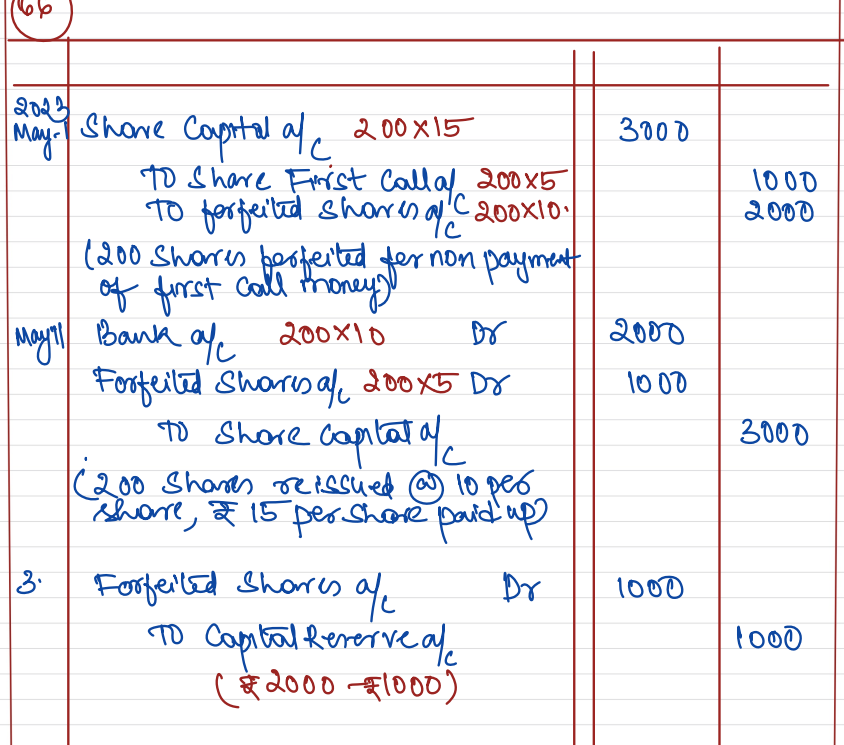 66
2023
May-1 Share Capital a/c 200×15 3000
To Share First Call a/c 200×5 1000
To forfeited Shares a/c 200×10. 2000
(200 Shares forfeited for non payment
of first Call money)
May 11 Bank a/c 200×10 Dr 2000
Forfeited Shares a/c 200×5 Dr 1000
To Share Capital a/c 3000
(200 Shares reissued @ 10 per
share, ₹ 15 per share paid up)
3. Forfeited Shares a/c Dr 1000
To Capital Reserve a/c 1000
(₹2000 - ₹1000)